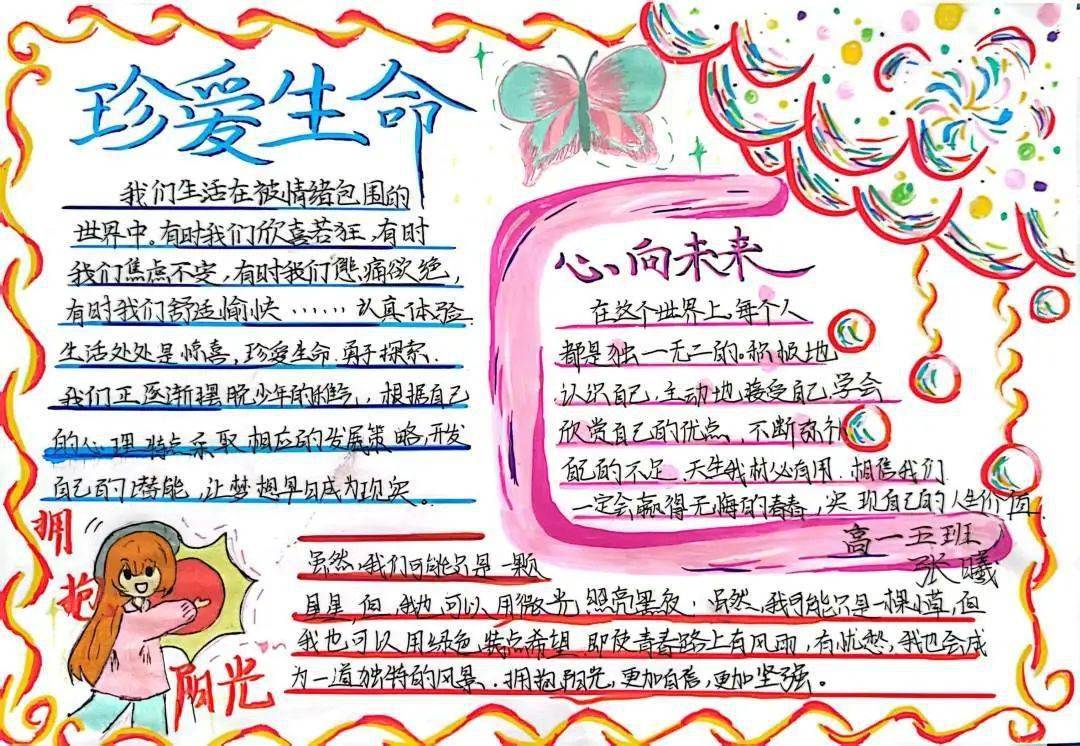 珍爱生命
我们生活在被情绪包围的
世界中。有时我们欣喜若狂,有时
我们焦点不安,有时我们悲痛欲绝,
有时我们舒适愉快……认真体验
生活处处是惊喜,珍爱生命.勇于探索.
我们正逐渐摆脱少年的稚气,根据自己
的心理特点采取相应的发展策略,开发
自己的潜能,让梦想早日成为现实。
心向未来
在这个世界上,每个人
都是独一无二的。积极地
认识自己,主动地接受自己,学会
欣赏自己的优点,不断弥补
自己的不足.天生我材必有用.相信我们
一定会赢得无悔的青春,实现自己的人生价值.
高一五班
张曦
拥抱
阳光
虽然,我们可能只是一颗
星星,但,我也可以用微光,照亮黑夜;虽然,我可能只是一棵小草,但
我也可以用绿色,装点希望.即使青春路上有风雨,有忧愁,我也会成
为一道独特的风景.拥抱阳光,更加自信,更加坚强。